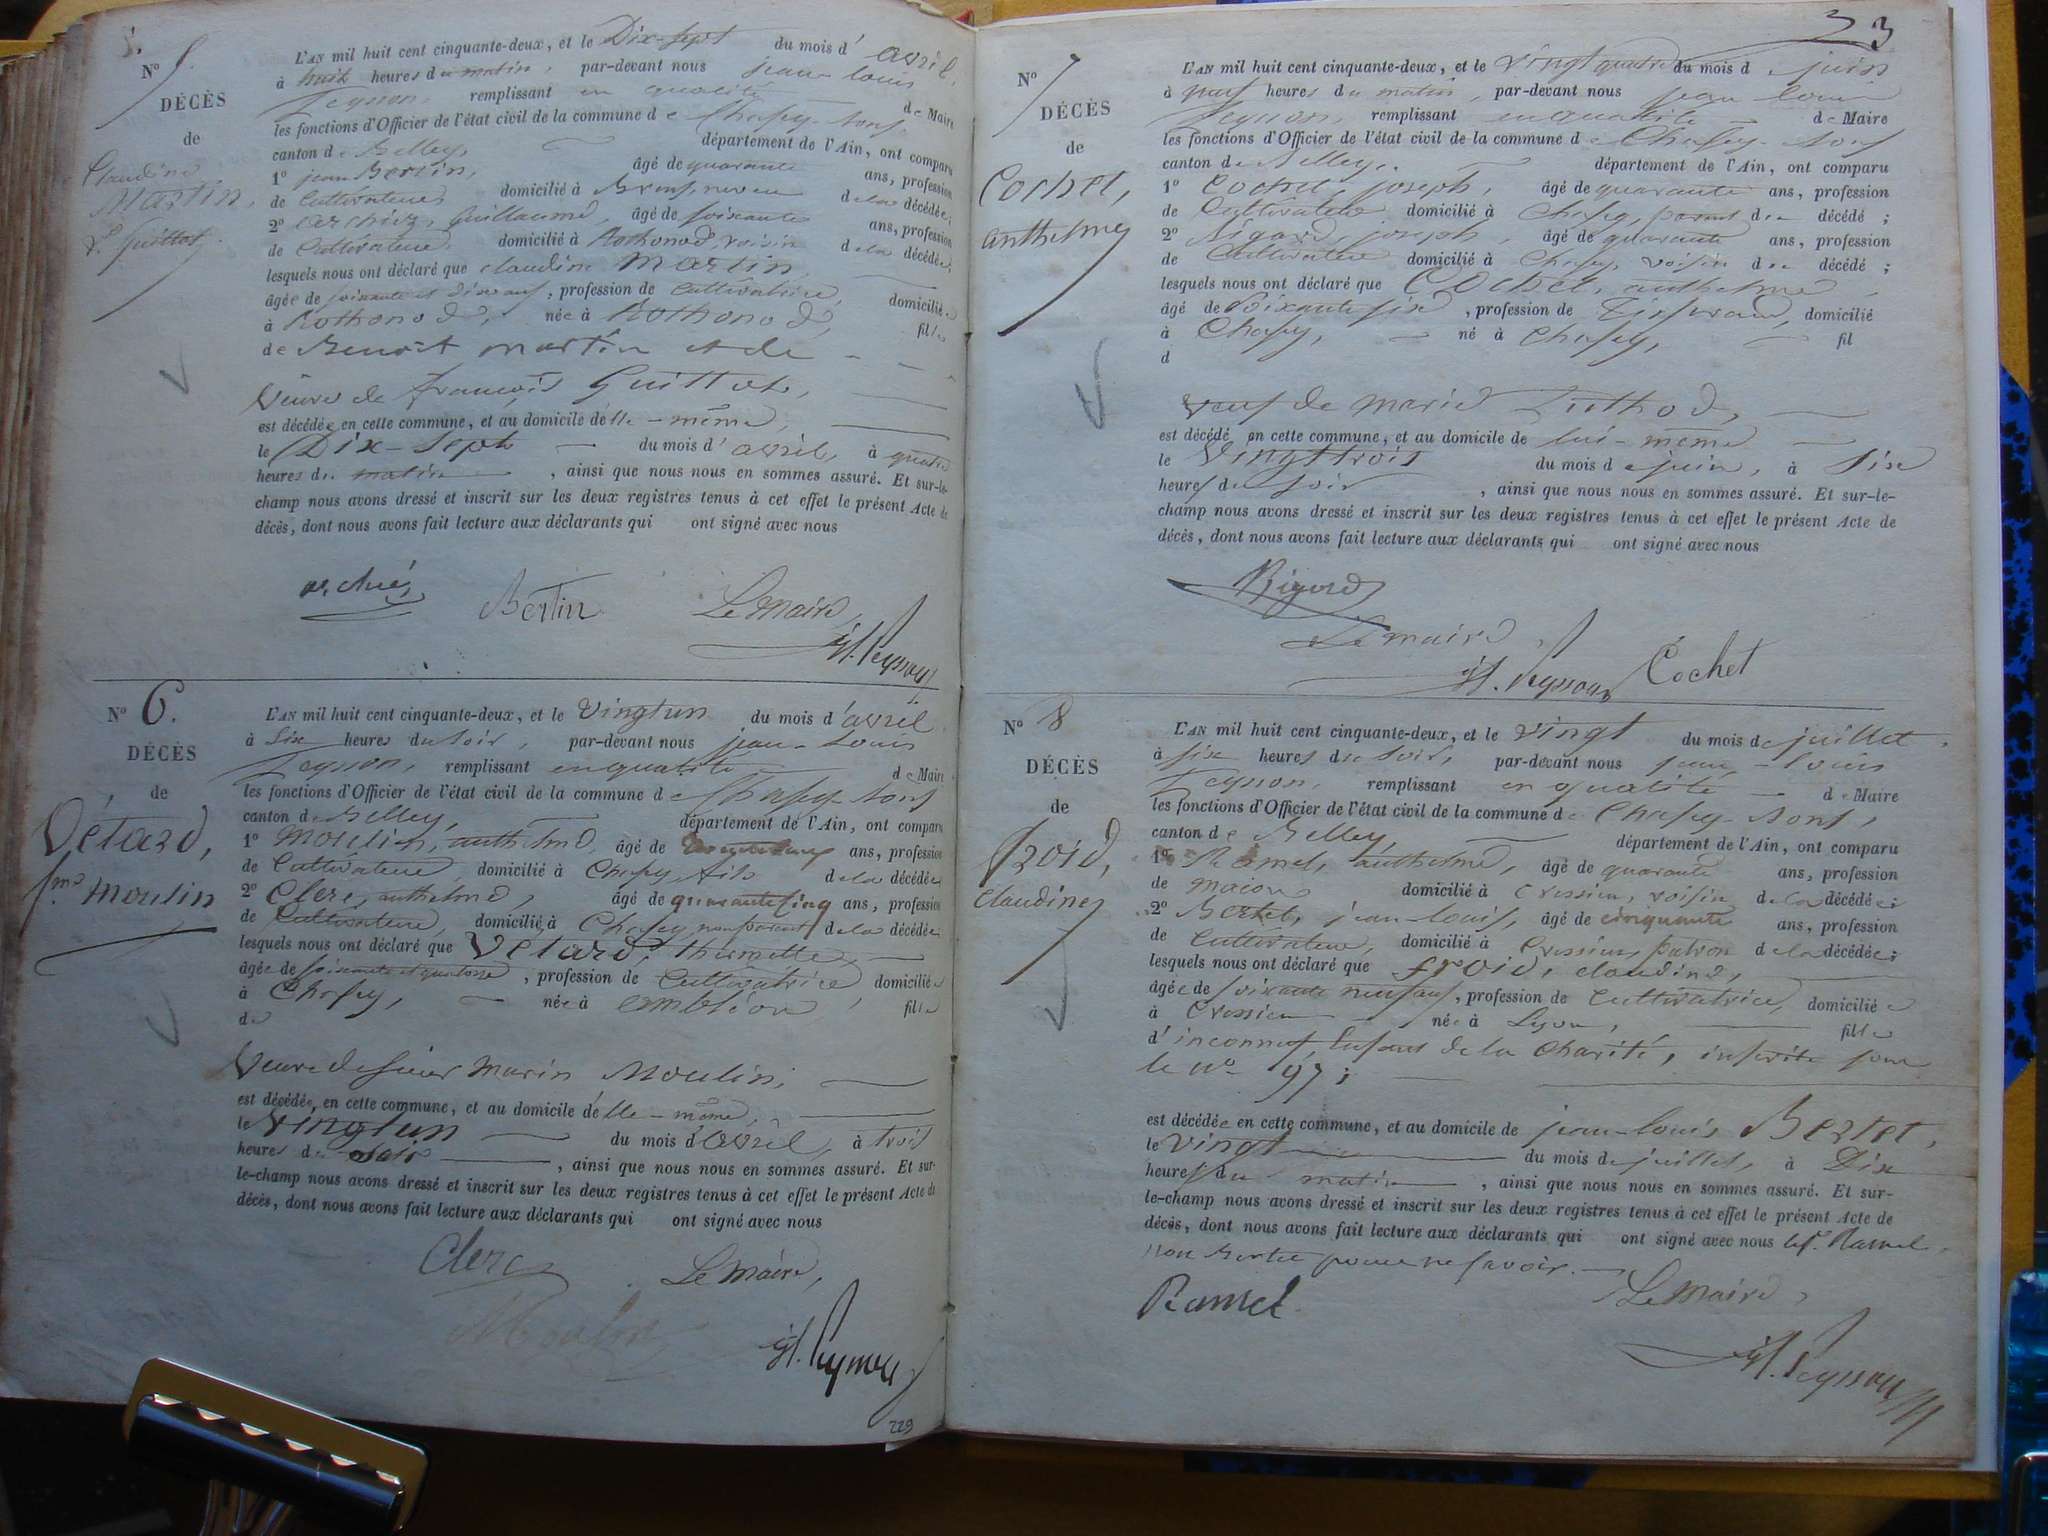 5.
N° 5.
DÉCÈS
de
Claudine
Martin,
Ve Guillot.
L'AN mil huit cent cinquante-deux, et le Dix-sept du mois d'avril,
à huit heures du matin, par-devant nous jean-louis
Peysson, remplissant en qualité de Maire
les fonctions d'Officier de l'état civil de la commune de Chasey-bons,
canton de Belley, département de l'Ain, ont comparu
1° jean Bertin, âgé de quarante ans, profession
de Cultivateur, domicilié à Brens, neveu de la décédée;
2° archier, Guillaume, âgé de soixante ans, profession
de Cultivateur, domicilié à Rothonod, voisin de la décédée;
lesquels nous ont déclaré que claudine Martin,
âgée de soixante et dix neuf, profession de Cultivatrice, domiciliée
à Rothonod, née à Rothonod, fille
de Benoit martin et de
Veuve de françois Guillot,
est décédée en cette commune, et au domicile d'elle-même,
le Dix-sept du mois d'avril, à quatre
heures du matin, ainsi que nous nous en sommes assuré. Et sur-le-
champ nous avons dressé et inscrit sur les deux registres tenus à cet effet le présent Acte de
décès, dont nous avons fait lecture aux déclarants qui ont signé avec nous
Bertin Le Maire,
jL. Peysson
N° 6.
DÉCÈS
de
Vétard,
fme Moulin
L'AN mil huit cent cinquante-deux, et le vingtun du mois d'avril
à Six heures du soir, par-devant nous jean-Louis
Peysson, remplissant en qualité de Maire
les fonctions d'Officier de l'état civil de la commune de Chasey-bons
canton de Belley, département de l'Ain, ont comparu
1° Moulin, anthelme, âgé de ans, profession
de Cultivateur, domicilié à Chasey, fils de la décédée;
2° Clerc, anthelme, âgé de quarante cinq ans, profession
de Cultivateur, domicilié à Chasey non parent de la décédée;
lesquels nous ont déclaré que Vétard,
âgée de soixante et quatorze, profession de Cultivatrice domiciliée
à Chasey, née à fille
de
Veuve de sieur Marin Moulin,
est décédée, en cette commune, et au domicile d'elle-même,
le Vingtun du mois d'avril, à trois
heures du soir, ainsi que nous nous en sommes assuré. Et sur-
le-champ nous avons dressé et inscrit sur les deux registres tenus à cet effet le présent Acte de
décès, dont nous avons fait lecture aux déclarants qui ont signé avec nous
Clerc Le Maire,
Moulin
jL. Peysson
229
33
N° 7
DÉCÈS
de
Cochet,
anthelme
L'AN mil huit cent cinquante-deux, et le vingt quatre du mois de juin
à neuf heures du matin, par-devant nous jean louis
Peysson, remplissant en qualité de Maire
les fonctions d'Officier de l'état civil de la commune de Chasey-bons
canton de Belley, département de l'Ain, ont comparu
1° Cochet, joseph, âgé de quarante ans, profession
de Cultivateur domicilié à Chasey, parent du décédé;
2° Rigard, joseph, âgé de quarante ans, profession
de Cultivateur domicilié à Chasey, voisin du décédé;
lesquels nous ont déclaré que Cochet, anthelme,
âgé de soixante six, profession de Tisserand, domicilié
à Chasey, né à Chasey, fil
d
Veuf de marie Luthod,
est décédé en cette commune, et au domicile de lui-même
le Vingt trois du mois de juin, à Six
heures du soir, ainsi que nous nous en sommes assuré. Et sur-le-
champ nous avons dressé et inscrit sur les deux registres tenus à cet effet le présent Acte de
décès, dont nous avons fait lecture aux déclarants qui ont signé avec nous
Rigard
Le maire
jL. Peysson Cochet
N° 8
DÉCÈS
de
froid,
Claudine
L'AN mil huit cent cinquante-deux, et le vingt du mois de juillet,
à six heures du soir, par-devant nous jean-louis
Peysson, remplissant en qualité de Maire
les fonctions d'Officier de l'état civil de la commune de Chasey-bons,
canton de Belley, département de l'Ain, ont comparu
1° Ramel, anthelme, âgé de quarante ans, profession
de maçon, domicilié à Cressieu, voisin de la décédée;
2° Bertet, jean-louis, âgé de cinquante ans, profession
de Cultivateur, domicilié à Cressieu, patron de la décédée;
lesquels nous ont déclaré que froid, claudine,
âgée de soixante neuf ans, profession de Cultivatrice, domiciliée
à Cressieu née à Lyon, fille
d'inconnus, Enfant de la Charité, inscrite sous
le n° 97;
est décédée en cette commune, et au domicile de jean-louis Bertet,
le vingt du mois de juillet, à Dix
heures du matin, ainsi que nous nous en sommes assuré. Et sur-
le-champ nous avons dressé et inscrit sur les deux registres tenus à cet effet le présent Acte de
décès, dont nous avons fait lecture aux déclarants qui ont signé avec nous led. Ramel,
non Bertet pour ne savoir.
Ramel Le Maire,
jL. Peysson